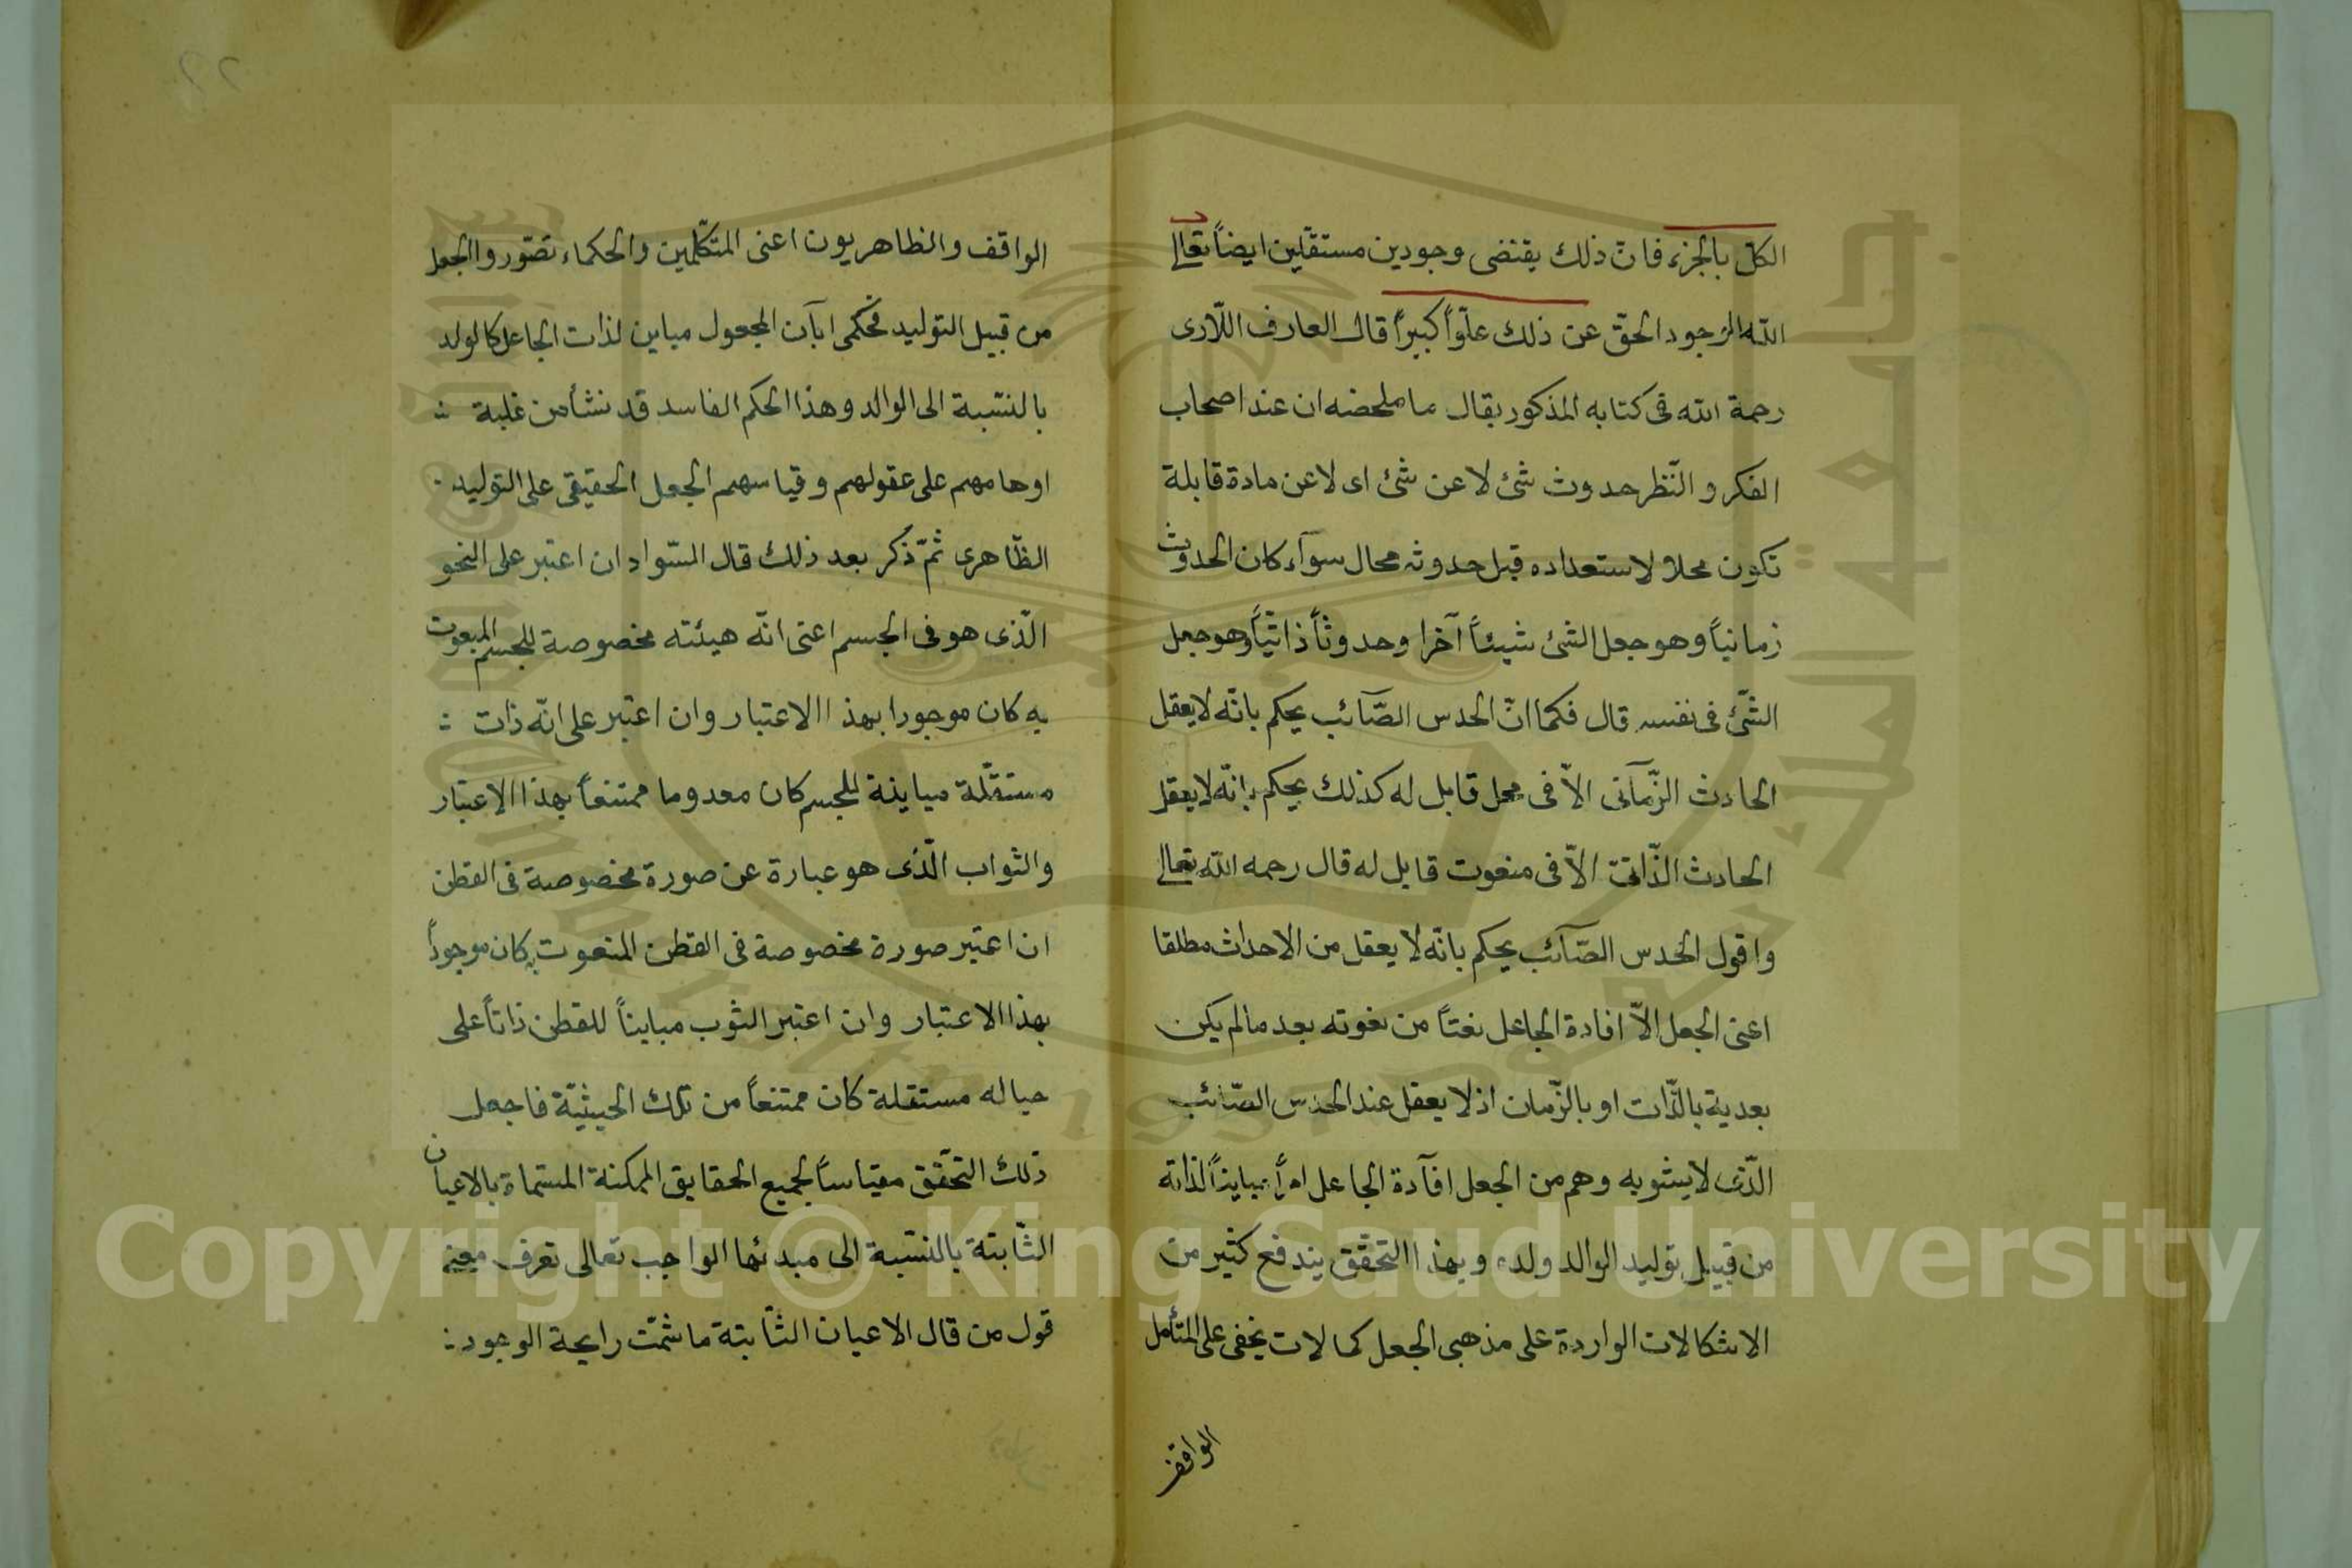 الكلّ بالجزء فانّ ذلك يقتضى وجودين مستقلّين ايضاً تعالى
الله الوجود الحقّ عن ذلك علوّاً كبيراً قال العارف اللّارى
رحمة الله فى كتابه المذكور يقال ما ملخصه ان عند اصحاب
الفكر و النّظر حدوث شئ لا عن شئ اى لا عن مادة قابلة
تكون محلاً لاستعداده قبل حدوثه محال سوآء كان الحدوث
زمانياً وهو جعل الشئ شيئاً آخرا وحدوثاً ذاتيّاً وهو جعل
الشّئ فى نفسه قال فكما انّ الحدس الصّآئب يحكم بانّه لا يعقل
الحادث الزّمآنى الاّ فى محل قابل له كذلك يحكم بانّه لا يعقل
الحادث الذّاتى الاّ فى منعوت قابل له قال رحمه الله تعالى
واقول الحدس الصّآئب يحكم بانّه لا يعقل من الاحداث مطلقا
اعنى الجعل الاّ افادة الجاعل نعتاً من نعوته بعد ما لم يكن
بعدية بالذّات او بالزّمان اذ لا يعقل عند الحدس الصّائب
الّذى لا يشوبه وهم من الجعل افآدة الجاعل امراً مبايناً لذاته
من قبيل توليد الوالد ولده وبهذا التحقّق يندفع كثير من
الاشكالات الواردة على مذهبى الجعل كما لات يخفى على المتأمل
الواقف
الواقف والظاهريون اعنى المتكّلمين والحكماء تصّوروا الجعل
من قبيل التوليد فحكموا بآن المجعول مباين لذات الجاعل كالولد
بالنسّبة الى الوالد وهذا الحكم الفاسد قد نشأ من غلبة
اوهامهم على عقولهم وقياسهم الجعل الحقيقى على التوليد
الظّاهرى ثمّ ذكر بعد ذلك قال السّواد ان اعتبر على النحو
الّذى هو فى الجسم اعنى انّه هيئته مخصوصة للجسم المنعوت
به كان موجودا بهذا الاعتبار وان اعتبر على انّه ذات
مستقّلة مباينة للجسم كان معدوما ممتنعاً بهذا الاعتبار
والثواب الّذى هو عبارة عن صورة مخصوصة فى القطن
ان اعتبر صورة مخصوصة فى القطن المنعوت به كان موجوداً
بهذا الاعتبار وان اعتبر الثوب مبايناً للقطن ذاتاً على
حياله مستقلة كان ممتنعاً من تلك الحيثيّة فاجعل
ذلك التحّقق مقياساً لجميع الحقايق الممكنة المسّماة بالاعيان
الثّابتة بالنسّبة الى مبدئها الواجب تعالى تعرف معنى
قول من قال الاعيان الثّابتة ما شمّت رايحة الوجود
Copyright © King Saud University